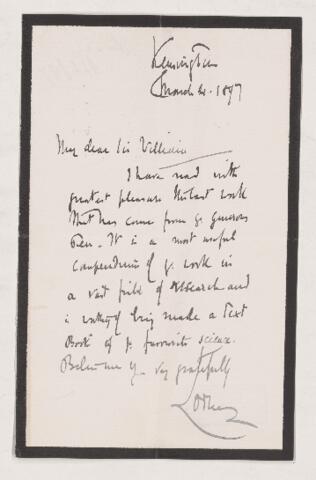 Kensington
March 4. 1897
My dear Sir William
I have read with
greatest pleasure the last work
that has come from yr. generous
Pen. It is a most useful
compendium of yr. work in
a vast field of Research and
is worthy of being made a Text
Book of yr. favourite science.
Believe me yrs. very gratefully